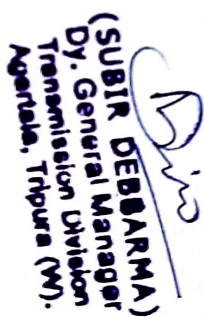 (SUBIR DEBBARMA)
Dy. General Manager
Transmission Division
Agartala, Tripura (W).